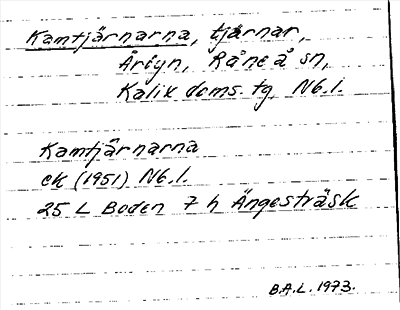 Kamtjärnarna, tjärnar,
Årbyn, Råneå sn,
Kalix doms. tg. Nb.l.
Kamtjärnarna
ek (1951) Nb.l.
25 L Boden 7 h Ängesträsk
B.A.L. 1973.